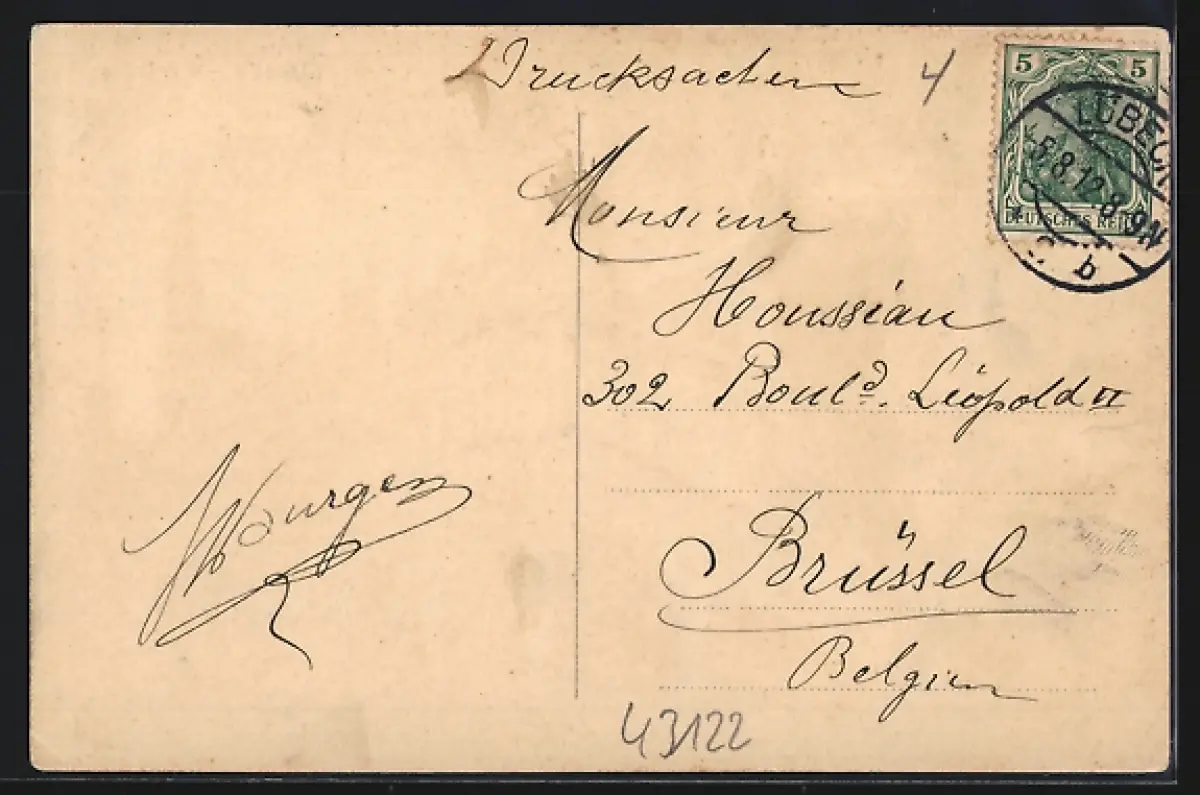 Drucksachen 4
5 5
DEUTSCHES REICH
LÜBECK
5.8.12.8-9N
b
Monsieur
Houssiau
302 Boulᵈ. Léopold II
Brüssel
Belgien
43122